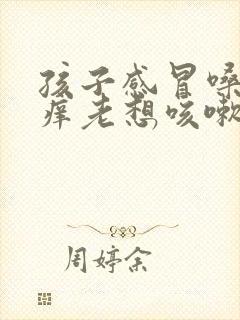 孩子感冒嗓
痒老想咳嗽
周婷余